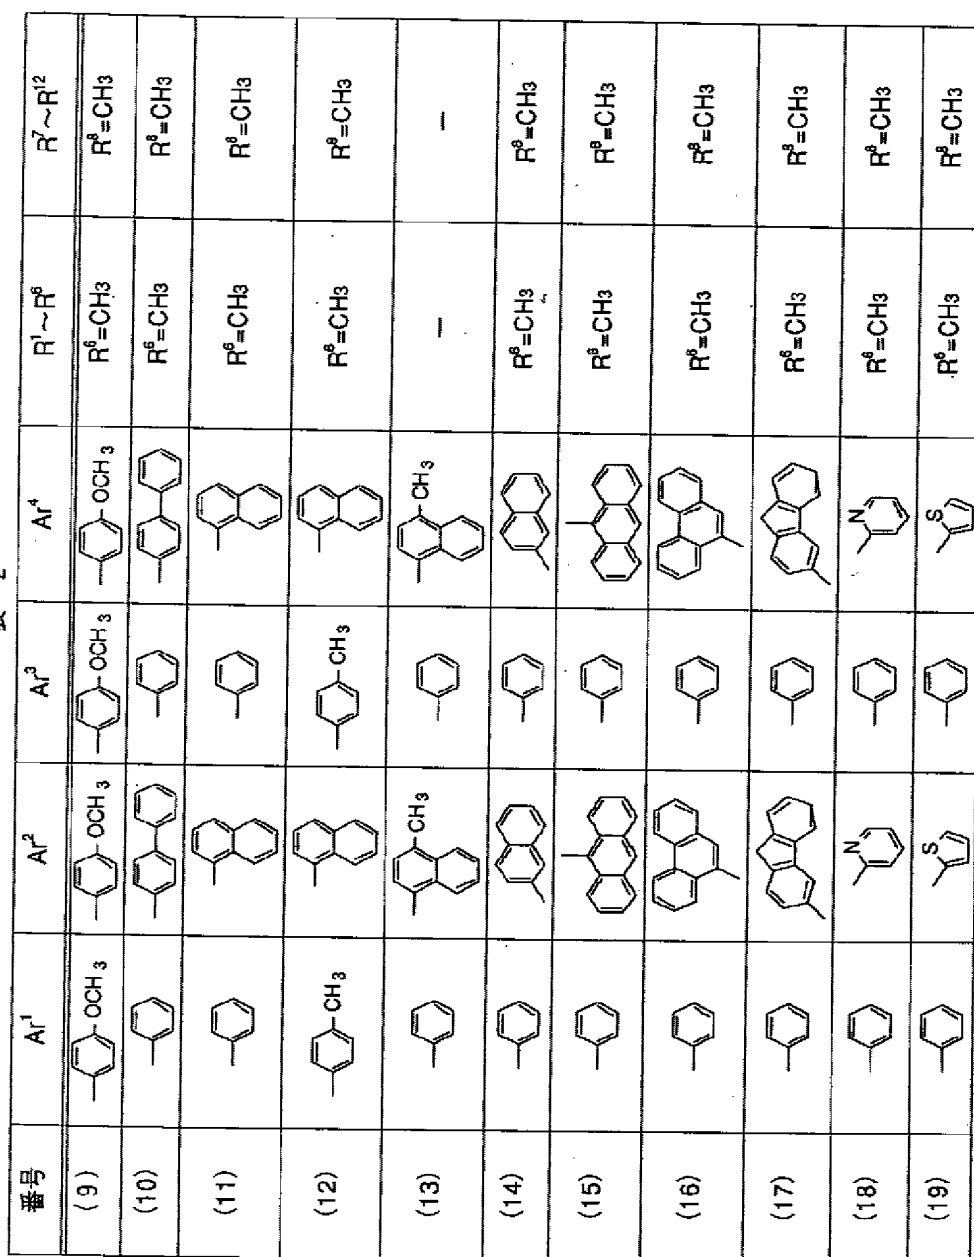 表 2
番号 Ar¹ Ar² Ar³ Ar⁴ R¹~R⁶ R⁷~R¹²
(9) OCH₃ OCH₃ OCH₃ OCH₃ R⁶=CH3 R⁸=CH3
(10) R⁶=CH3 R⁸=CH3
(11) R⁶=CH3 R⁸=CH3
(12) CH₃ CH₃ R⁶=CH3 R⁸=CH3
(13) CH₃ CH₃ — —
(14) R⁶=CH3 R⁸=CH3
(15) R⁶=CH3 R⁸=CH3
(16) R⁶=CH3 R⁸=CH3
(17) R⁶=CH3 R⁸=CH3
(18) N N R⁶=CH3 R⁸=CH3
(19) S S R⁶=CH3 R⁸=CH3